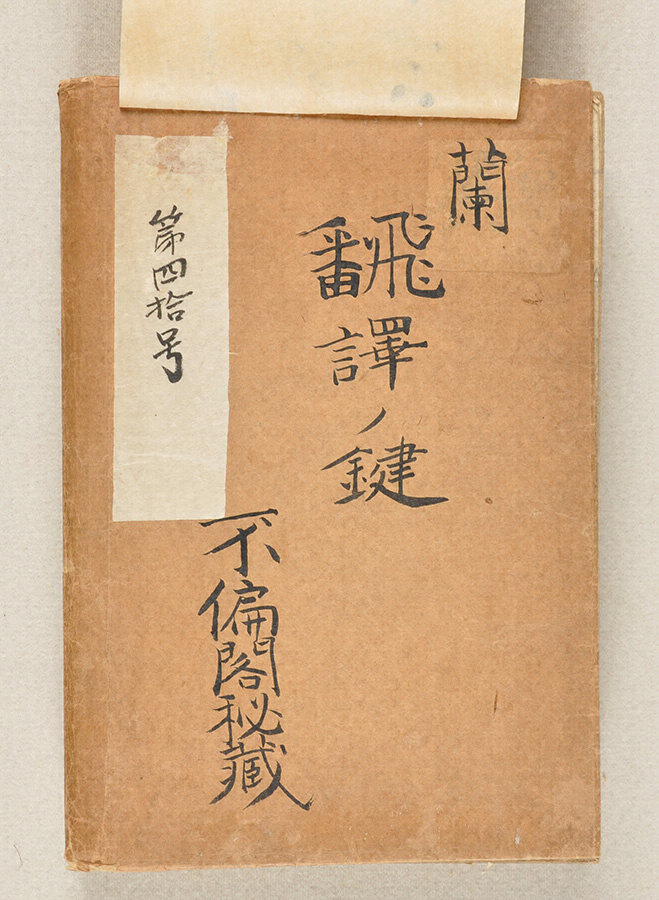 蘭
飜譯ノ鍵
不偏閣秘藏
第四拾号